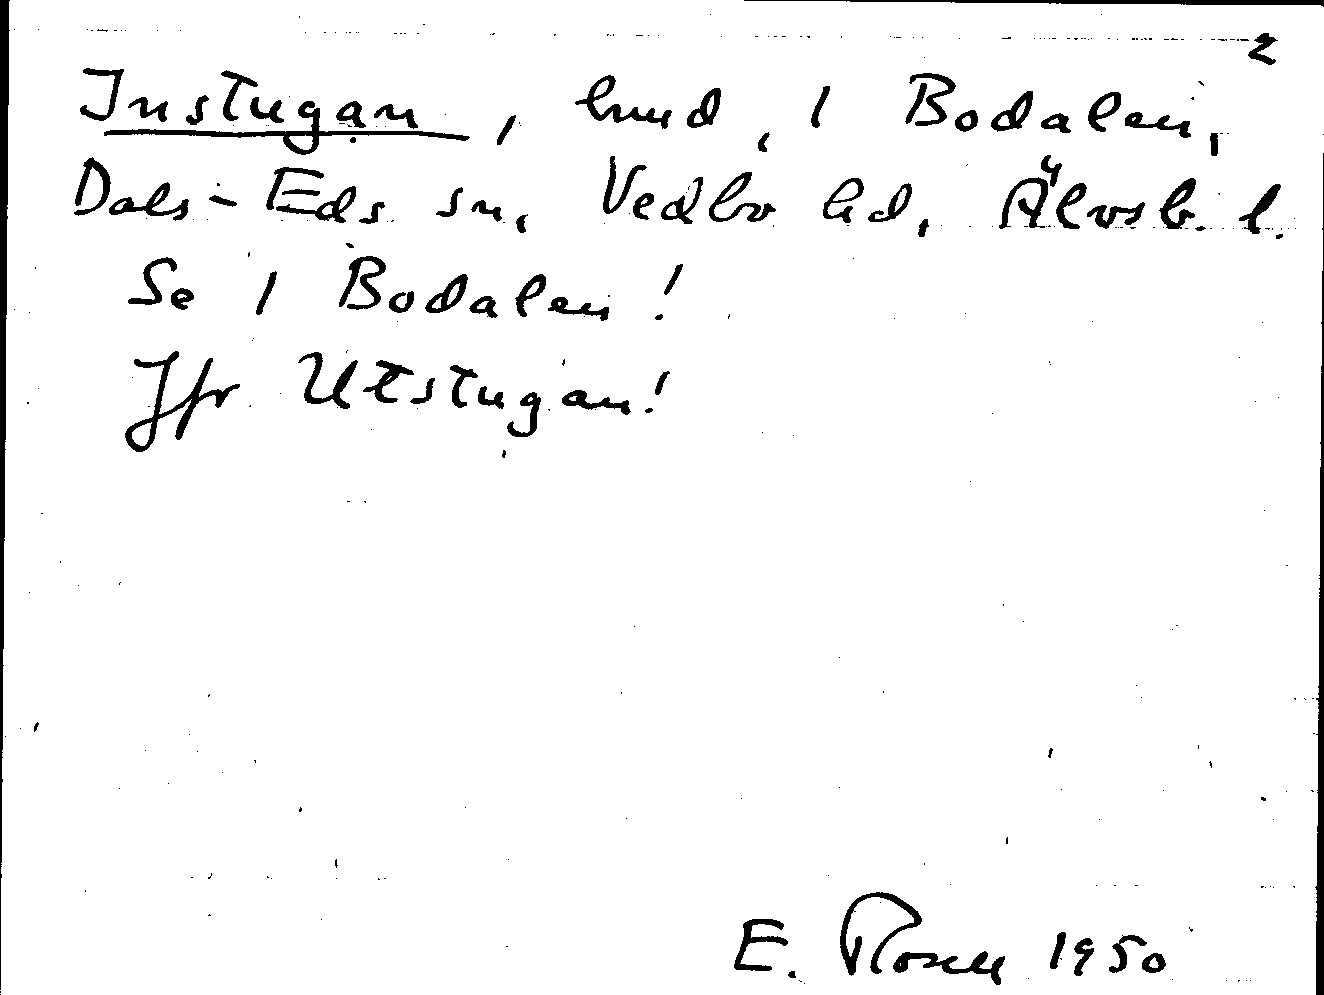 2
Instugan, hmd, 1 Bodalen,
Dals-Eds sn, Vedbo hd, Älvsb. l.
Se 1 Bodalen!
Jfr Utstugan!
E. Rosell 1950